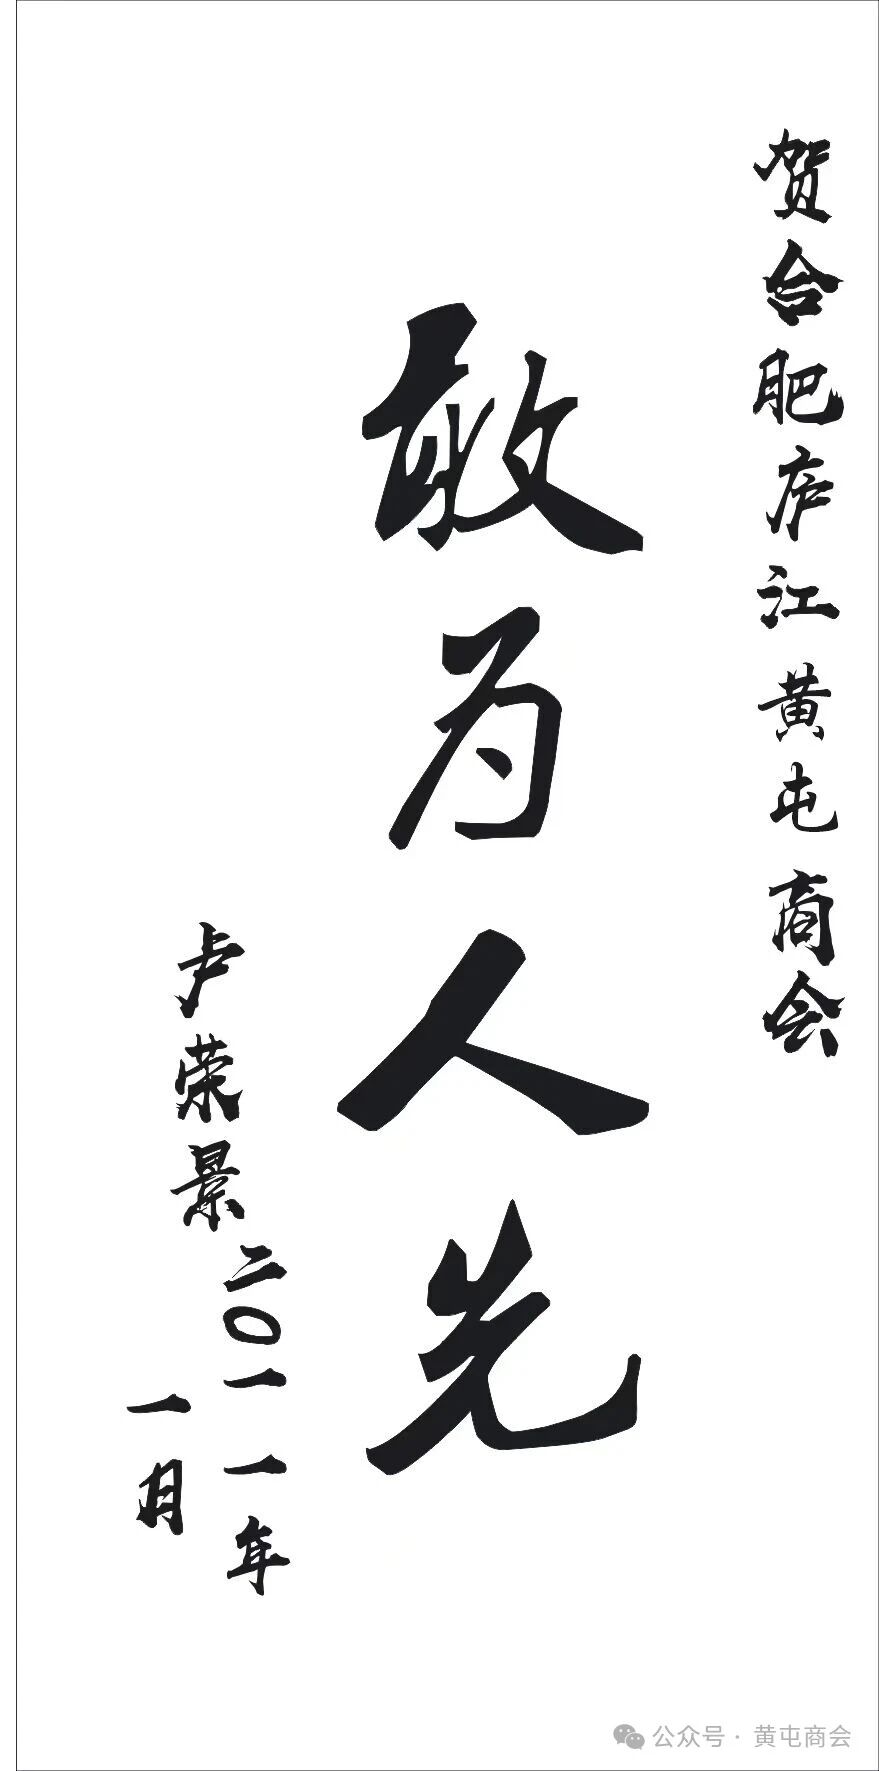 贺合肥庐江黄屯商会
敢为人先
卢荣景
二〇一一年
一月
公众号·黄屯商会